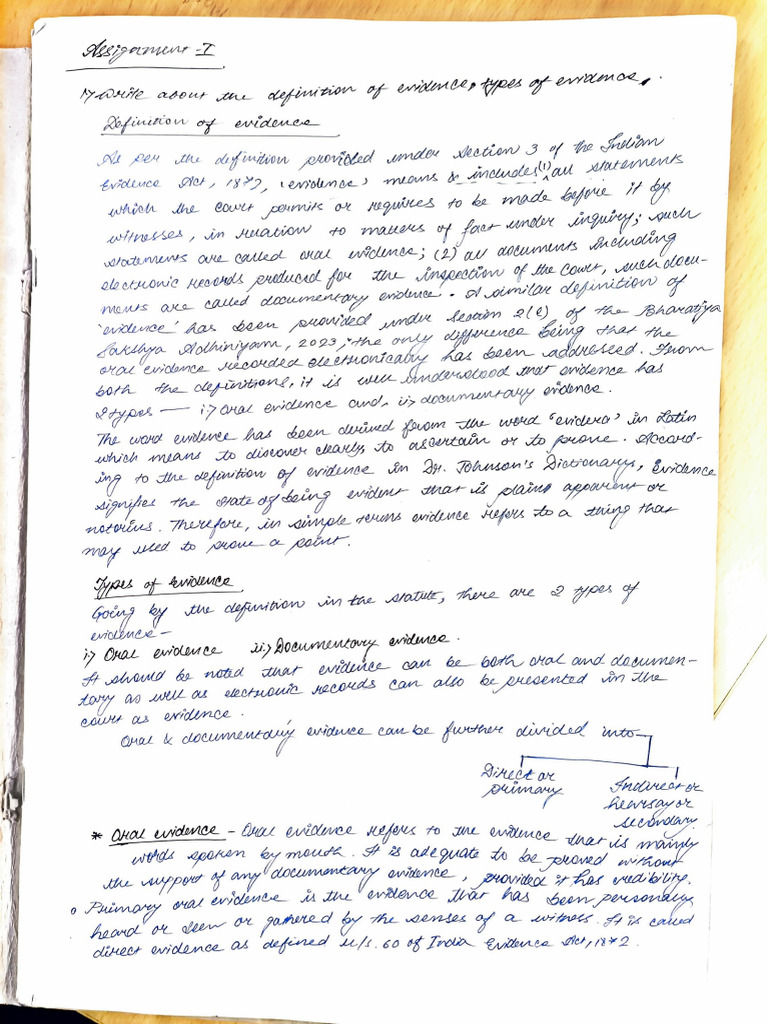 Assignment-I
1) Write about the definition of evidence, types of evidence.
Definition of evidence
As per the definition provided under Section 3 of the Indian
Evidence Act, 1872, 'evidence' means & includes (1) all statements
which the court permits or requires to be made before it by
witnesses, in relation to matters of fact under inquiry; such
statements are called oral evidence; (2) all documents including
electronic records produced for the inspection of the Court, such docu-
ments are called documentary evidence. A similar definition of
'evidence' has been provided under Section 2(e) of the Bharatiya
Sakshya Adhiniyam, 2023, the only difference being that the
oral evidence recorded electronically has been addressed. From
both the definitions, it is well understood that evidence has
2 types — i) Oral evidence and, ii) documentary evidence.
The word evidence has been derived from the word 'evidera' in Latin
which means to discover clearly to ascertain or to prove. Accord-
ing to the definition of evidence in Dr. Johnson's Dictionary, Evidence
signifies the state of being evident that is plain, apparent or
notorius. Therefore, in simple terms evidence refers to a thing that
may used to prove a point.
Types of Evidence
Going by the definition in the statute, there are 2 types of
evidence-
i) Oral evidence ii) Documentary evidence.
It should be noted that evidence can be both oral and documen-
tary as well as electronic records can also be presented in the
court as evidence.
Oral & documentary evidence can be further divided into
Direct or primary
Indirect or hearsay or secondary.
* Oral evidence - Oral evidence refers to the evidence that is mainly
words spoken by mouth. It is adequate to be proved without
the support of any documentary evidence, provided it has credibility.
o Primary oral evidence is the evidence that has been personally
heard or seen or gathered by the senses of a witness. It is called
direct evidence as defined u/s. 60 of India Evidence Act, 1872.